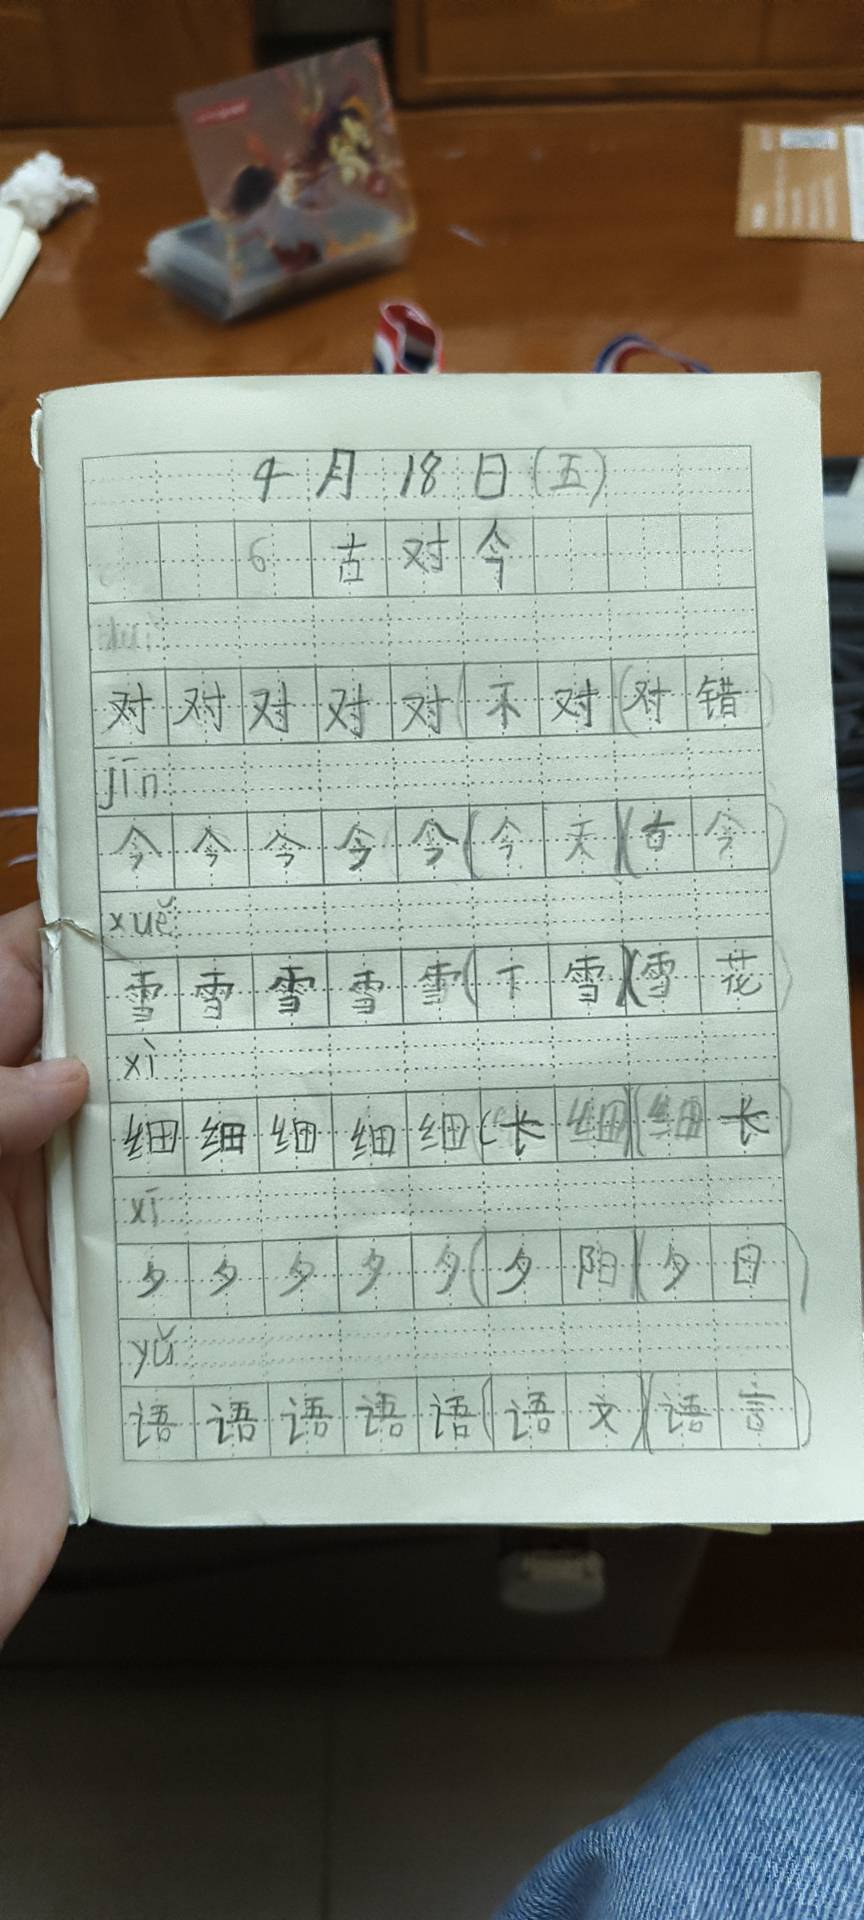 4月18日(五)
6 古对今
duì
对对对对对(不对)(对错)
jīn
今今今今今(今天)(古今)
xuě
雪雪雪雪雪(下雪)(雪花)
xì
细细细细细(长细)(细长)
xī
夕夕夕夕夕(夕阳)(夕日)
yǔ
语语语语语(语文)(语言)